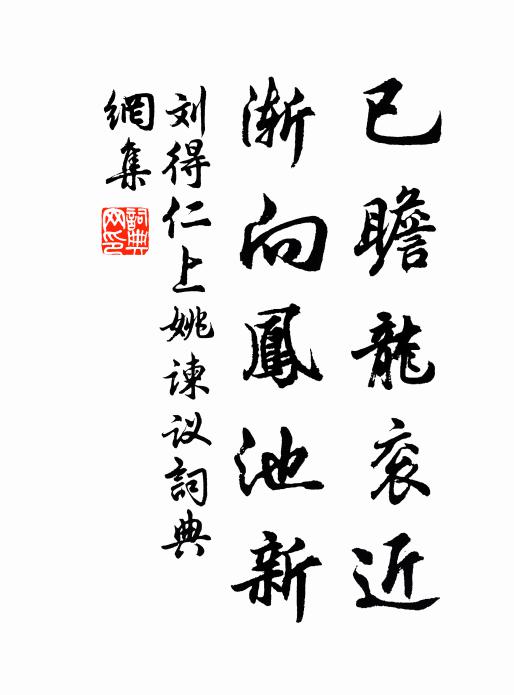 已瞻龍衮近
渐向鳳池新
刘得仁上姚谏议詞典
網集
詞典
网印